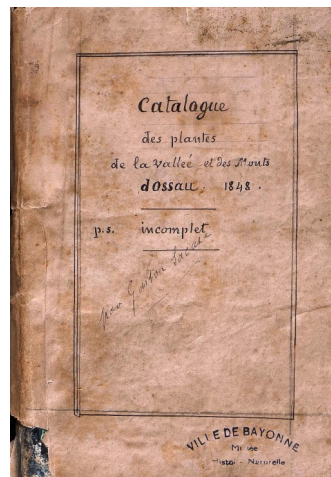 Catalogue
des plantes
de la valleé et des Monts
dossau, 1848.
p.s. incomplet
par Gaston Sacaze
VILLE DE BAYONNE
Histoi - Naturelle